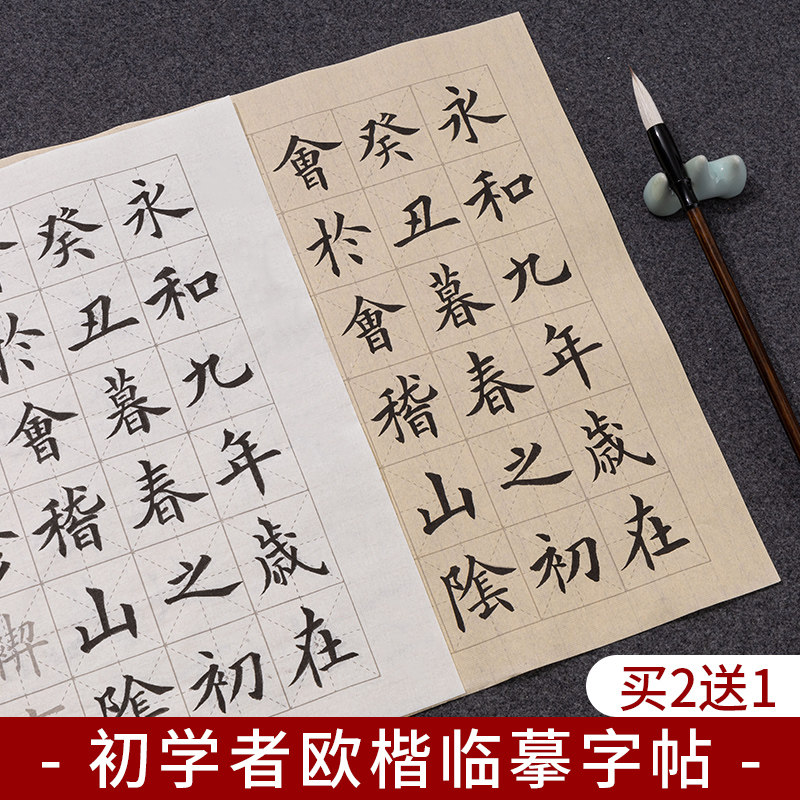 永和九年歲在
癸丑暮春之初
會於會稽山陰
永和九年歲在
癸丑暮春之初
於會稽山陰
禊
买2送1
- 初学者欧楷临摹字帖 -